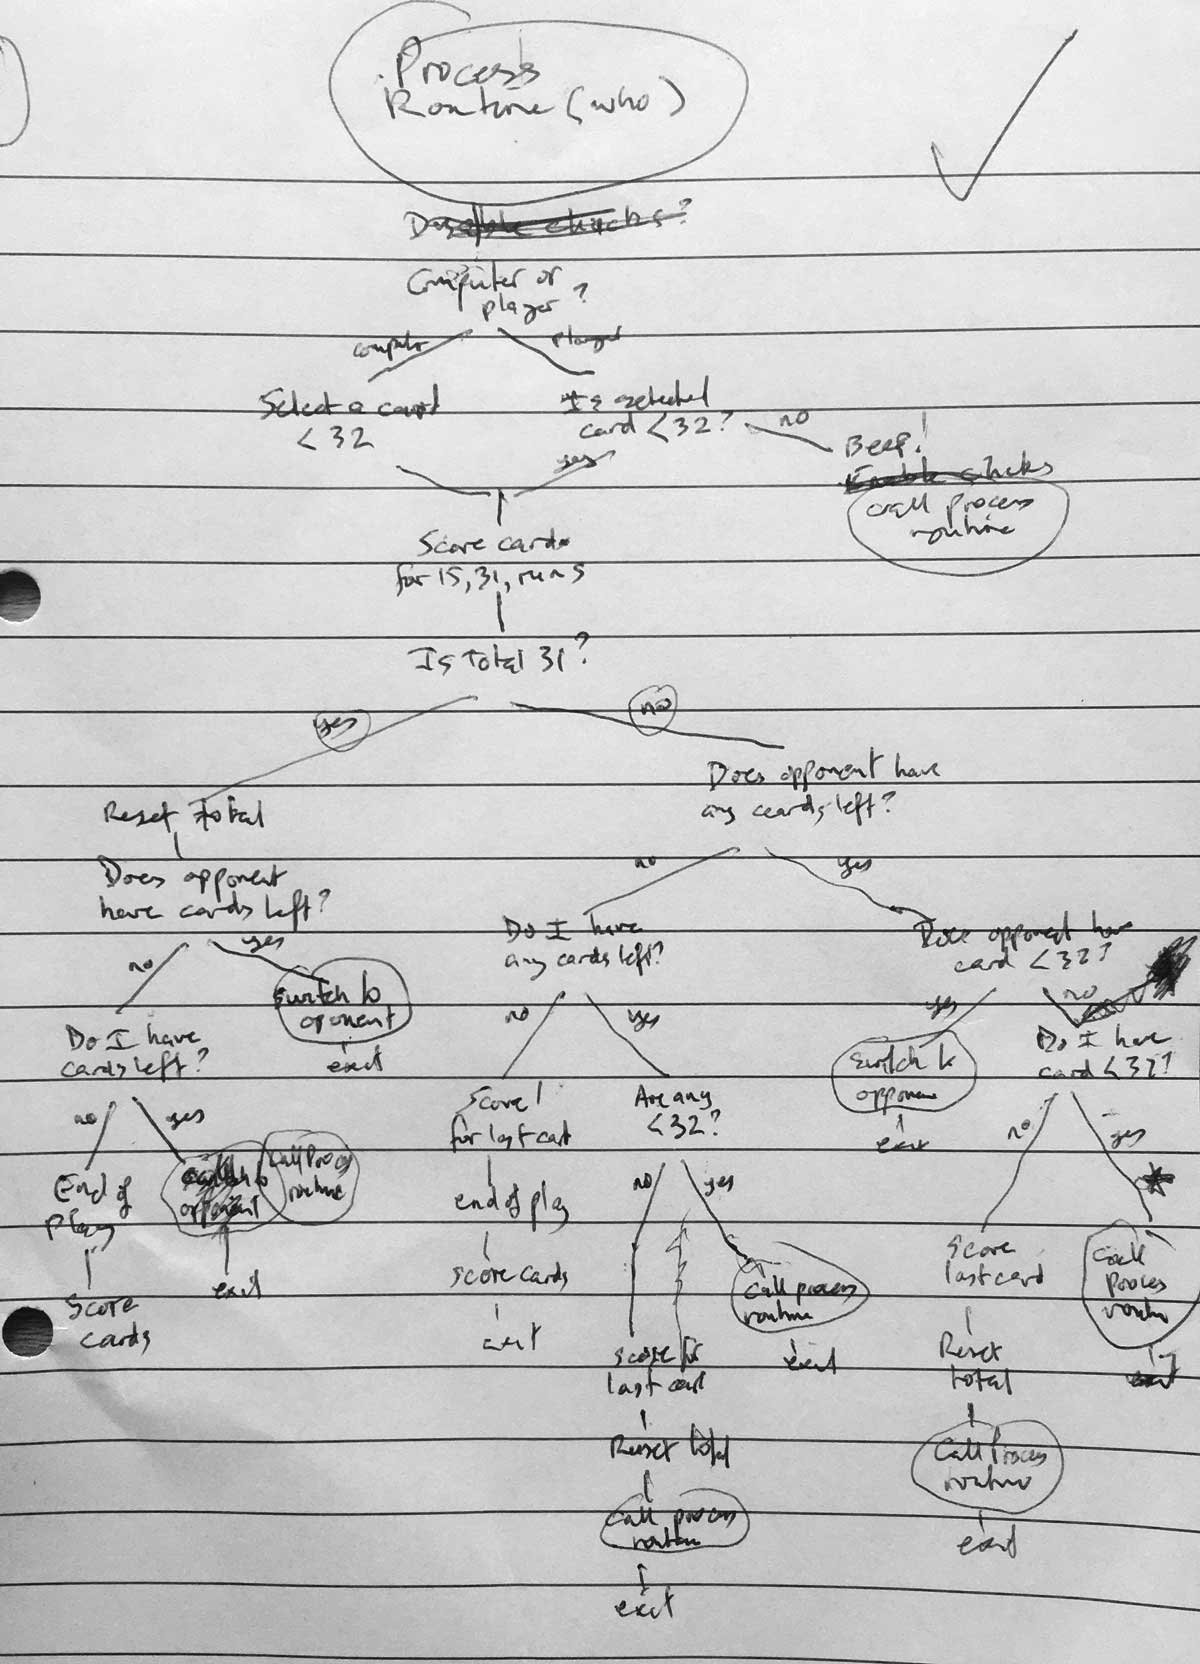 Process
Routine (who)
Computer or
player?
computer
player
Select a card
< 32
Is selected
card < 32?
no
yes
Beep!
call process
routine
Score cards
for 15, 31, runs
Is total 31?
yes
no
Reset total
Does opponent have
any cards left?
Does opponent
have cards left?
no
yes
no
yes
switch to
oponent
exit
Do I have
any cards left?
Does opponent have
card < 32?
Do I have
cards left?
no
yes
yes
no
switch to
opponent
exit
Do I have
card < 32?
no
yes
End of
Play
Score
cards
opponent
Call Process
routine
exit
Score 1
for last card
end of play
score cards
exit
Are any
< 32?
no
yes
call process
routine
exit
score for
last card
Reset total
call process
routine
exit
no
yes
Score
last card
Reset
total
Call Process
routine
exit
Call
Process
routine
exit